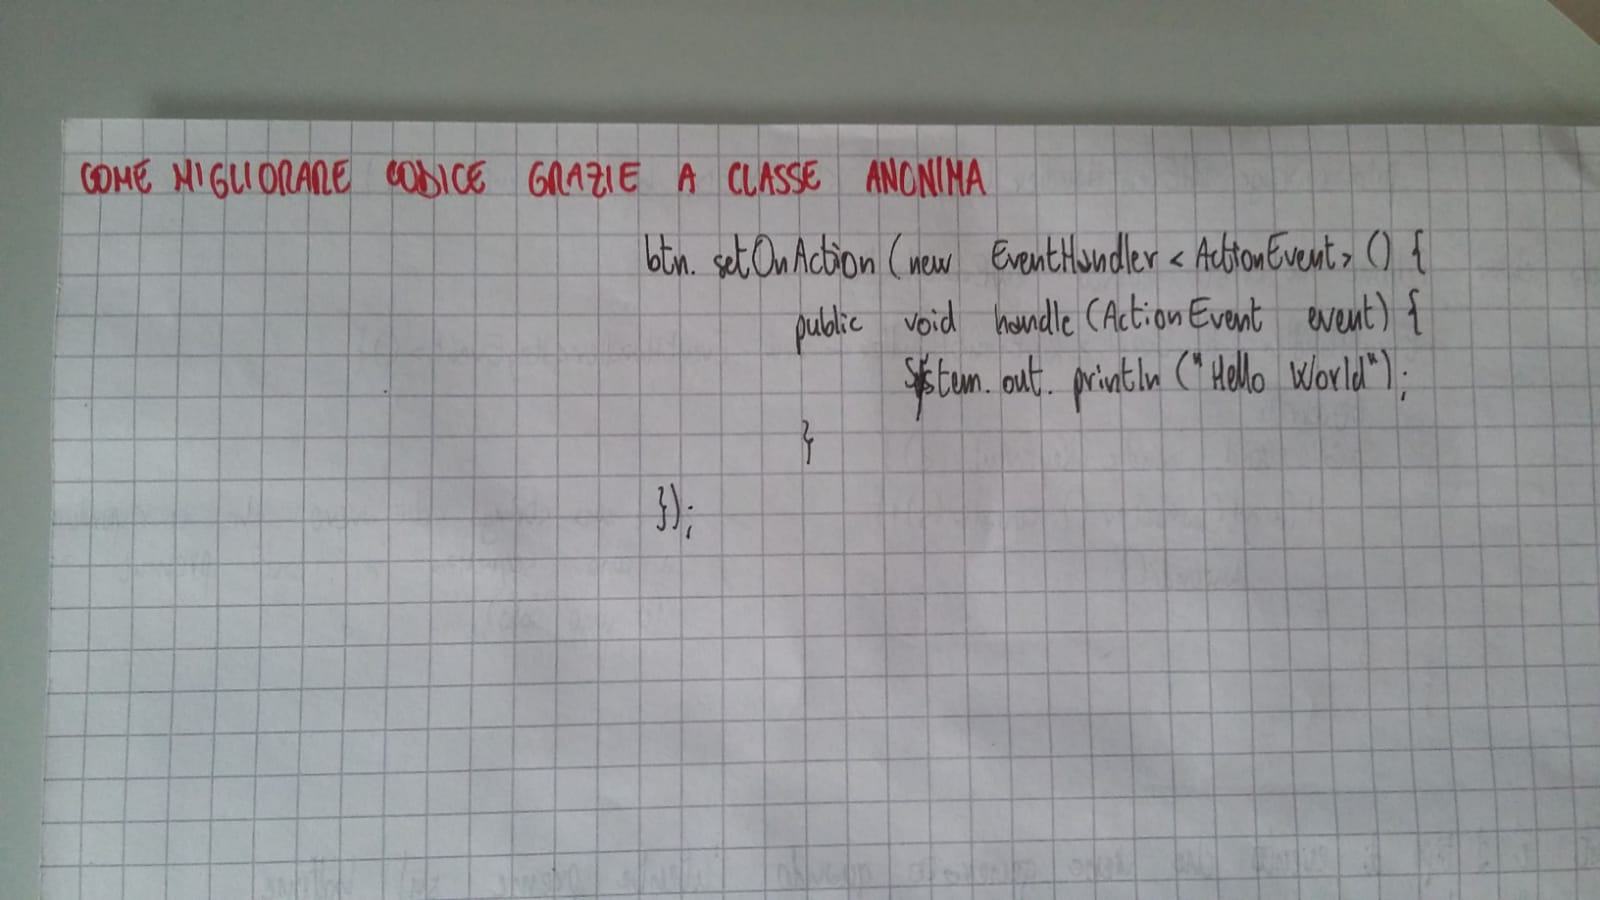 COME MIGLIORARE CODICE GRAZIE A CLASSE ANONIMA
btn. setOnAction (new EventHandler < ActionEvent> () {
public void handle (ActionEvent event) {
System. out. println ("Hello World");
}
});